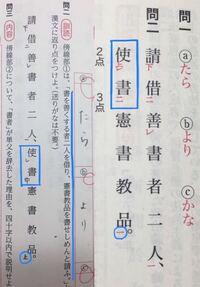 問一 ⓐたら ⓑより ⓒかな
問二 請下借善レ書者二人、使書二憲書教品。一
2点
3点
ⓐ たら ⓑ より
問二 訓読 傍線部①は、「書を善くする者二人を借り、憲書教品を書せしめんと請ふ」
漢文に返り点をつけよ。(送りがなは不要)
請下借善レ書者二人、使レ書中憲書教品。上
問三 内容 傍線部②について、「書者」が単父を辞去した理由を、四十字以内で説明せよ